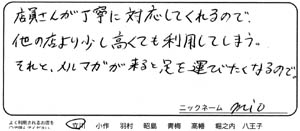 店員さんが丁寧に対応してくれるので、
他の店より少し高くても利用してしまう。
それと、メルマガが来ると足を運びたくなるので。
ニックネーム mio
よく利用されるお店を
立川 小作 羽村 昭島 青梅 高幡 堀之内 八王子